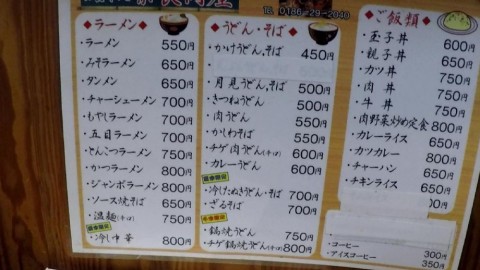 TEL 0186-29-2040
◆ラーメン◆
・ラーメン 550円
・みそラーメン 650円
・タンメン 650円
・チャーシューメン 700円
・もやしラーメン 700円
・五目ラーメン 750円
・とんこつラーメン 750円
・かつラーメン 800円
・ジャンボラーメン 800円
・ソース焼そば 650円
・温麺(辛口) 750円
・冷し中華 800円
◆うどん・そば◆
・かけうどん、そば 450円
・月見うどん、そば 500円
・きつねうどん 500円
・肉うどん 550円
・かしわそば 550円
・チゲ肉うどん(辛口) 600円
・カレーうどん 600円
・冷したぬきうどん・そば 700円
・ざるそば 700円
・鍋焼うどん 750円
・チゲ鍋焼うどん(辛口) 800円
◆ご飯類◆
・玉子丼 600円
・親子丼 650円
・カツ丼 750円
・肉丼 750円
・牛丼 750円
・肉野菜炒め定食 800円
・カレーライス 650円
・カツカレー 800円
・チャーハン 650円
・チキンライス 650円
・コーヒー 300円
・アイスコーヒー 350円